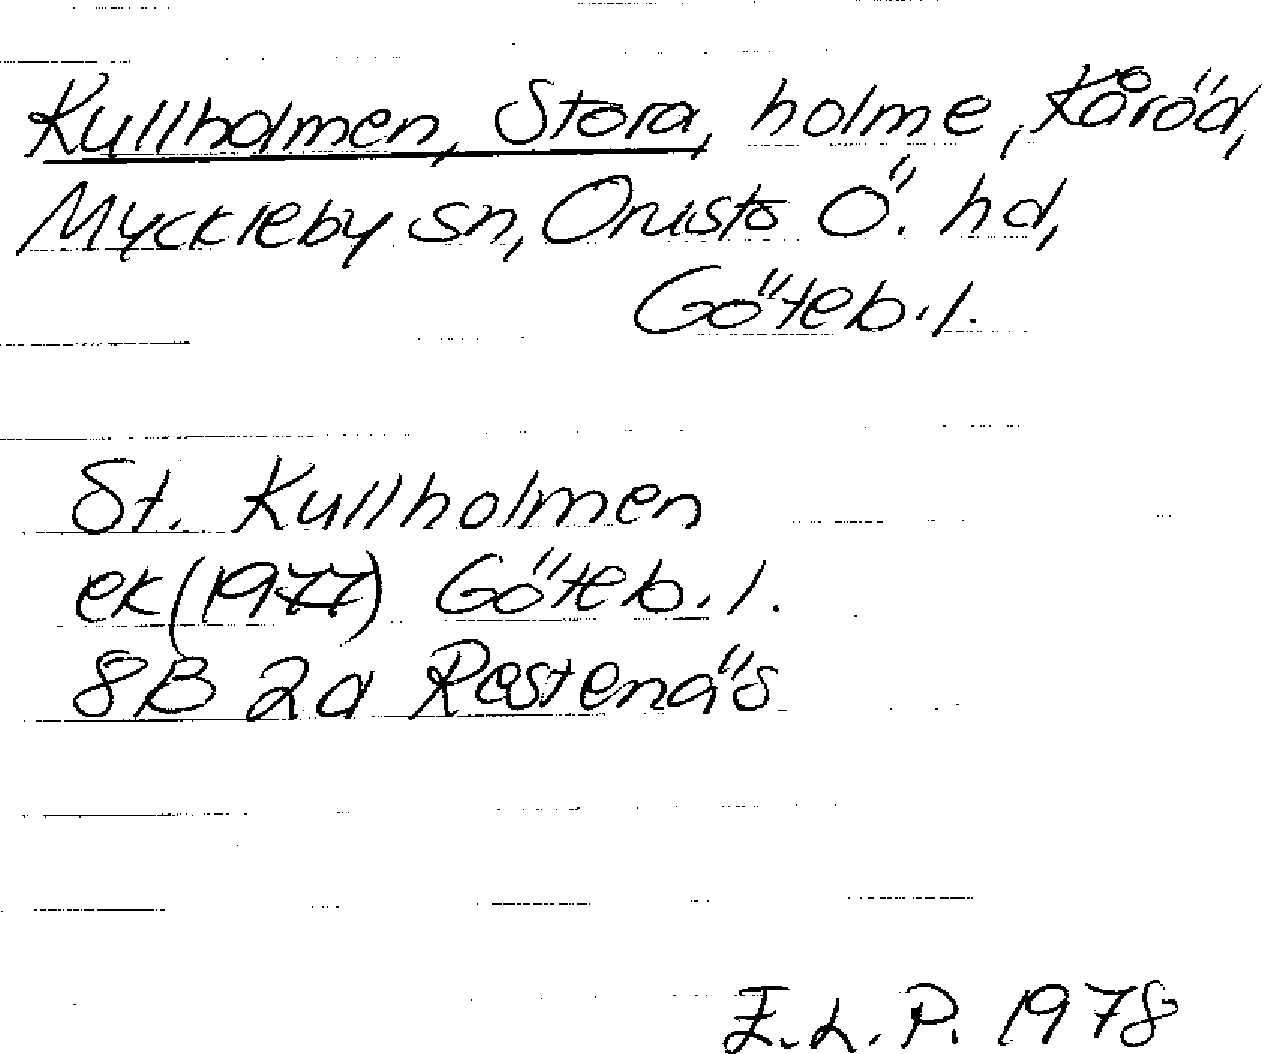 Kullholmen, Stora, holme, Kåröd,
Myckleby sn, Orusts Ö. hd,
Göteb. l.
St. Kullholmen
ek (1977) Göteb. l.
8B 2a Restenäs
E.L.P. 1978